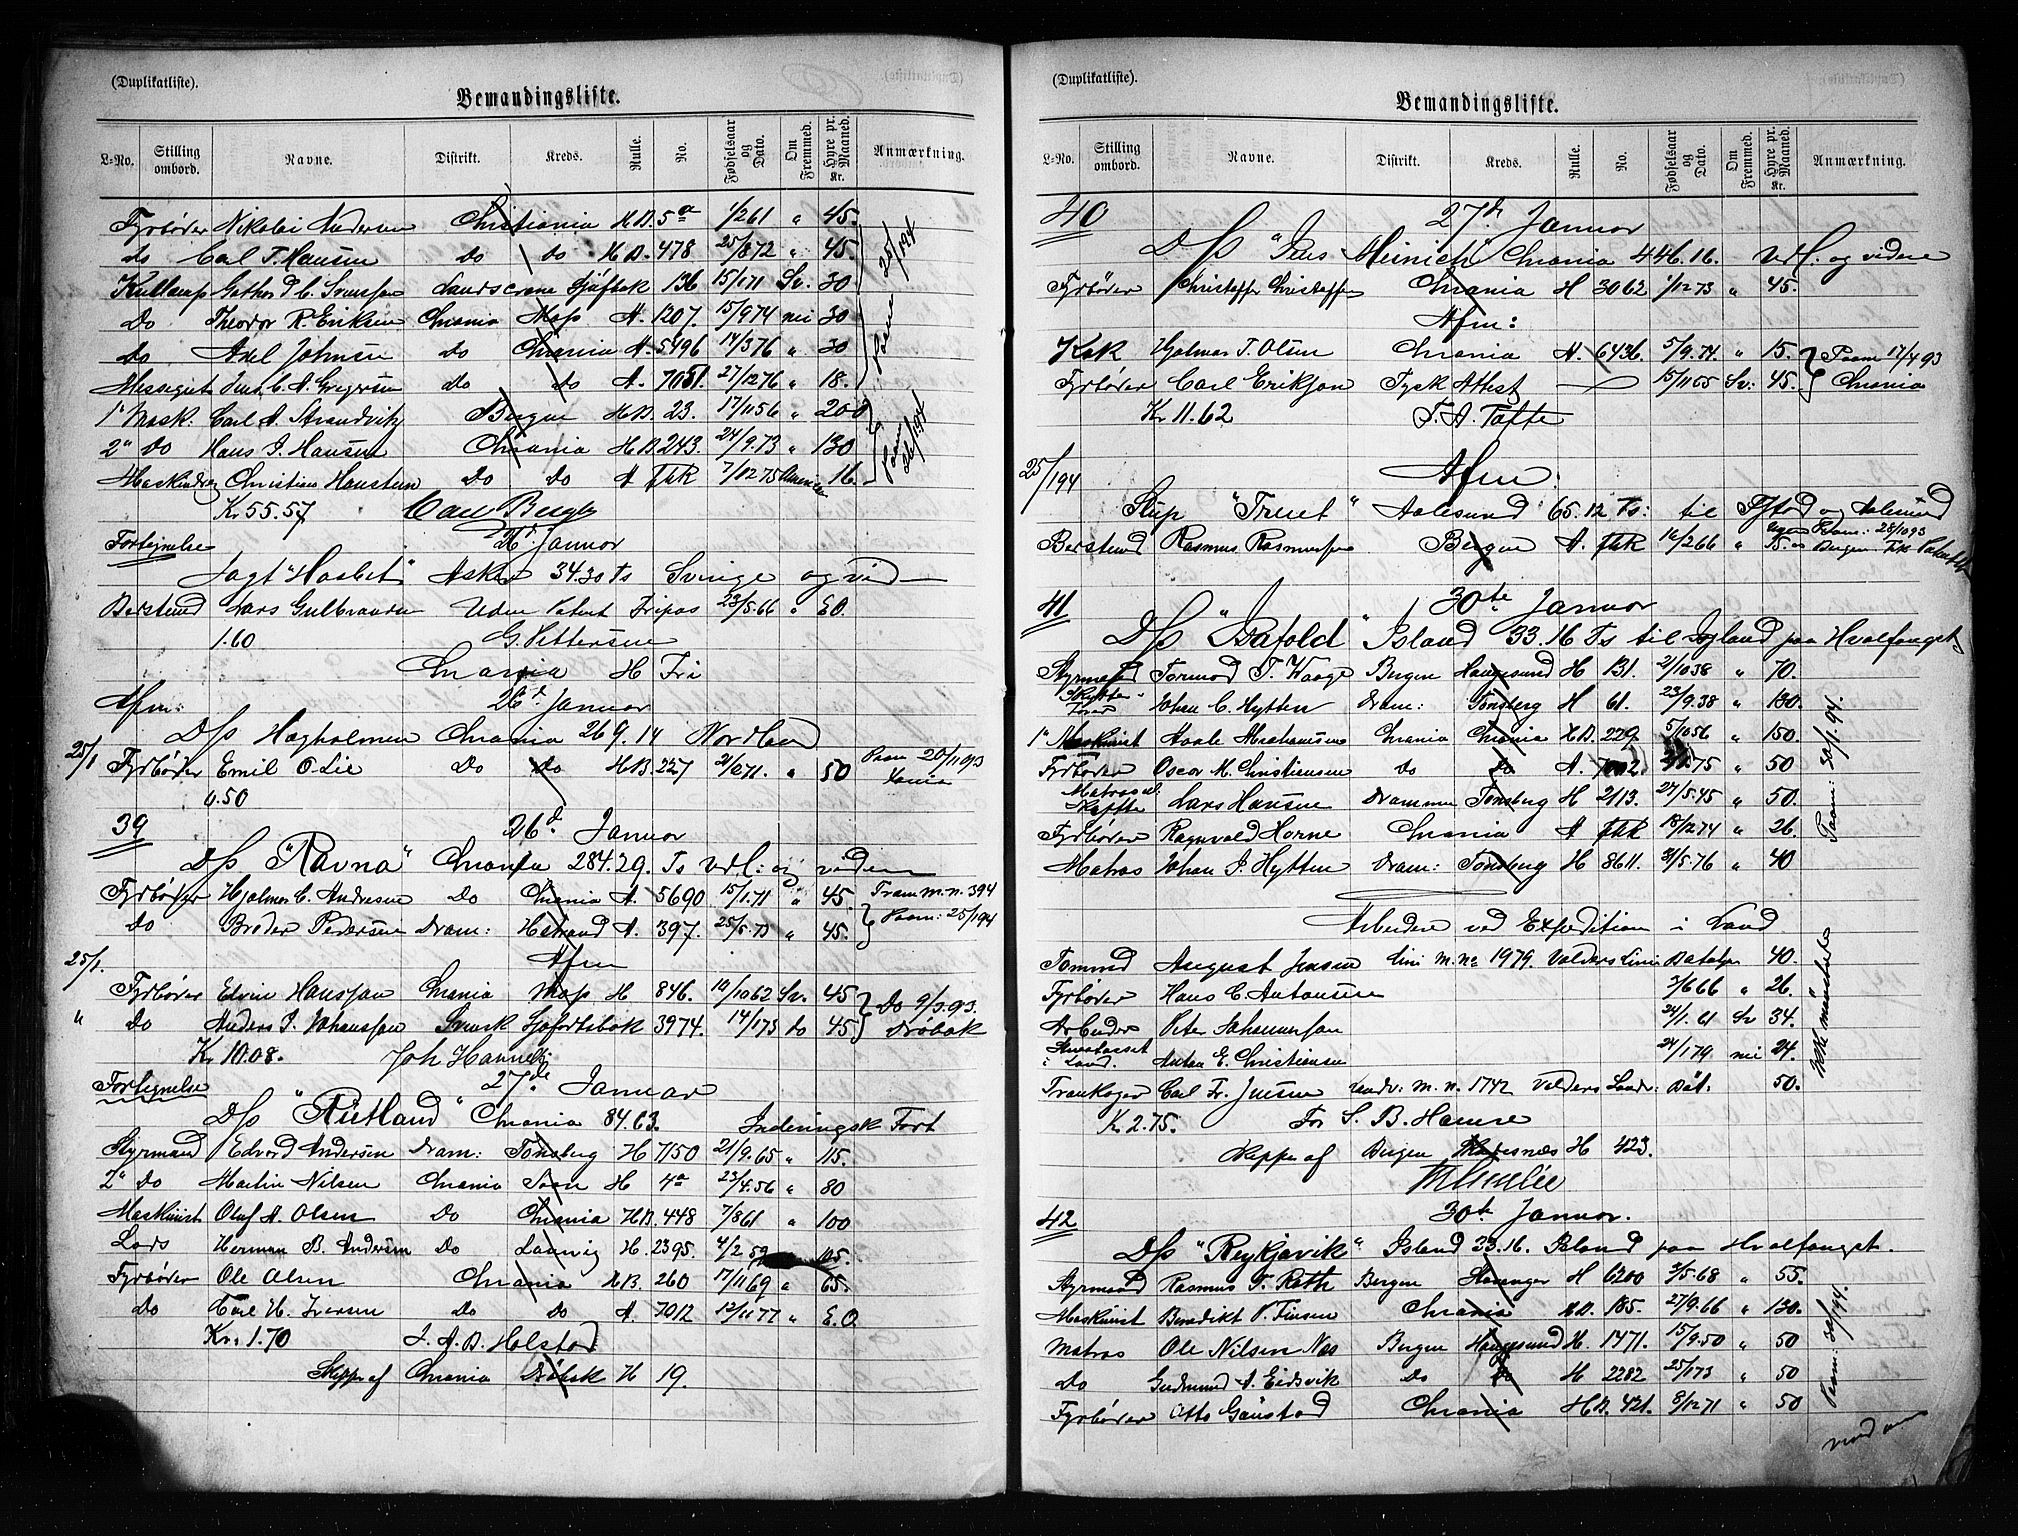 (Duplikatliste).
Bemandingsliste.
L-No. Stilling ombord. Navne. Distrikt. Kreds. Rulle. No. Fødselsaar og Dato. Om Fremmed. Hyre pr. Maaned. Kr. Anmærkning.
Fyrbøder Nikolai Andersen Christiania HB. 5a 1/2 61 " 45.
do Carl F. Hansen do do HB. 478 25/8 72 " 45.
Kullemp Gothard C. Svensson Landscrone Sjöfbok 136 15/1 71 Sv. 30
Do Theodor R. Eriksen Chrania Moss A. 1207. 15/9 74 nei 30
do Axel Johnsen Do Chrania A. 5496 14/3 76 " 30
Messegut Jens C. A. Gregersen Do do A. 7051. 27/12 76 " 18.
1" Mask. Carl A. Strandvik Bergen HB. 23. 17/11 56 " 200
2" do Hans J. Hansen Chrania HB. 243. 24/9. 73 " 130
Christian Do Do A 7/12 75 16.
Kr. 55.57 Carl Bergh
26d Januar
Fortegnelse
Jagt "Haabet" Asker 34.30 Ts Sverige og vid
Bestmd Lars Gulbrandsen Uden Patent Fripas 23/5. 66 " E.O.
1.60 G. Pettersen
Chrania H Fri
Afm: 26d Januar
D/S Hegholmen Chrania 269.14 Nordland
25/1 Fyrbøder Emil O. Lie Do Do HB. 227 71. " 50 Paam 20/11 093
0.50
39 26d. Januar
D/S "Ravna" Chrania 284.29. Ts Udl: og videre
Fyrbøder Hjalmar C. Andresen Do Chrania A. 5690 15/1. 71 " 45. Fram m. n. 394
Do Brede Pedersen Dram: Hstrand A. 397. 25/5. 73 " 45. Paam: 25/1 94
25/1. Afm
Fyrbøder Edvin Hansson Chrania Moss H 846. 10/10 62 Sv. 45 Do 9/3. 93.
" Do Anders J. Johansson Svensk Sjøfartsbok 3974. 14/1 73 do 45 Drøbak
Kr 10.08. Joh Hannevig
Fortegnelse 27de Januar
D/S "Rutland" Chrania 84.63. Indenrigsk Fart
Styrmand Edvard Andersen Dram: Tønsberg H 7150 21/9. 65 " 115.
2" Do Martin Nilsen Chrania Soon H 4a 23/4. 56 " 80
Maskinist Oluf A. Olsen Do Chrania HB. 448 7/8 61 " 100
Lods Herman B. Andersen Do Laurvig H. 2395. 4/2 59 105.
Fyrbøder Ole Olsen Chrania HB. 260 17/11 69 " 65.
Do Carl H. Iversen Do Do A. 7012 12/11 77 " E.O
Kr. 1.70 J. A. B. Holstad
Skipper af Chrania Drøbak H 19.
(Duplikatliste).
Bemandingsliste.
L-No. Stilling ombord. Navne. Distrikt. Kreds. Rulle. No. Fødselsaar og Dato. Om Fremmed. Hyre pr. Maaned. Kr. Anmærkning.
40 27de Januar
D/S "Jens Meinich" Chrania 446.16. Udl. og videre
Fyrbøder Christoffer Christoffersen Chrania H 3062 1/12 73 " 45.
Afm:
Kok Hjalmar T. Olsen Chrania A. 6436 5/9. 74. " 15. Paam 17/4 93
Fyrbøder Carl Eriksson Tysk Attest 15/11 55 Sv: 45. Chrania
Kr 11.62 T. A. Tofte
25/1 94 Afm:
Slup "Treset" Aalesund 65.12 Ts: til og Aalesund
Bestmd Rasmus Rasmussen Bergen A. 16/2 66 " 75. Paam: 28/10 93 Bergen
41 30te Januar
D/S "Isafold" Island 33.16 Ts til Island paa Hvalfangst
Styrmand Tormod T. Waage Bergen Haugesund H 131. 2/10 38 " 70.
Skytter Fører Johan C. Hytten Dram: Tønsberg H 61. 23/9. 38 " 130.
1" Maskinist Abrahamsen Chrania Chrania HB. 229 5/10 56 " 150.
Fyrbøder Oscar M. Christiansen Do Do A. 75 " 50
Matros al. Skytte Lars Hansen Drammen Tønsberg H 2113. 27/5. 45 " 50.
Fyrbøder Ragnvald Horne Chrania A 18/12 74 " 26.
Matros Johan J. Hytten Dram: Tønsberg H 8611. 31/5. 76 " 40
Paam: 30/1. 94.
Arbeidere ved Expedition i Land
Tømmd August Jensen m. no 1979. 40.
Fyrbøder Hans C. Antonsen 3/6 66 " 26.
Arbeider Peter Johannesson 24/1. 61 Sv 34.
i Land. Anton E. Christiansen 24/1 79. nei 24.
Trankoger Carl Fr. Jensen m. n. 1742 50.
Ikke mønstret
Kr. 2.75. For S. B. Hamre
Skipper af Bergen H 423.
42 30te Januar.
D/S "Reykjavik" Island 23.16. Island paa Hvalfangst.
Styrmand Rasmus T. Rath Bergen Stavanger H 6200 3/5. 68 " 55.
Maskinist Benedikt P. Finsen Chrania HB. 185. 27/9. 66 " 130.
Matros Ole Nilsen Næs Bergen Haugesund H. 1471. 15/9. 50 " 50
Do Gudmund A. Eidsvik Do Do H 2282 25/1 73 " 50
Fyrbøder Otto Gaustad Chrania HB. 421. 8/12 71 " 50
Paam: 30/1 94.